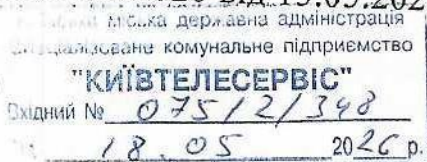 від 15.05.202
міська державна адміністрація
спеціалізоване комунальне підприємство
"КИЇВТЕЛЕСЕРВІС"
Вхідний № 075/2/348
18.05 2026 р.